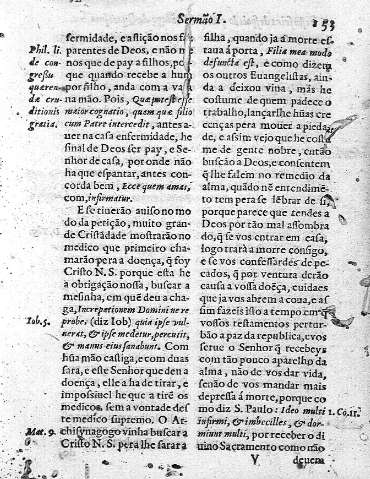 Sermão I.
153
fermidade, e aflição nos fi
parentes de Deos, e não ne
nos que de pay a filhos, por
que quando recebe a hum
por filho, anda com a va
na mão. Pois, Quæ inest esse
maior cognatio, quam quæ filio
cum Patre intercedit, antes a-
uer na casa enfermidade, he
sinal de Deos ser pay, e Se-
nhor de casa, por onde não
ha que espantar, antes con-
corda bem, Ecce quem amas,
com, infirmatur.
E se tiuerão auiso no mo
do da petição, muito gran-
de Cristãdade mostrarão no
medico que primeiro cha-
marão pera a doença, q̃ foy
Cristo N. S. porque esta he
a obrigação nossa, buscar a
mesinha, em quẽ deu a cha-
ga, Increpationem Domini ne re
probes. (diz Iob) quia ipse vul-
nerat, & ipse medetur, percutit,
& manus eius sanabunt. Com
hũa mão castiga, e com duas
sara, e este Senhor que deu a
doença, elle a ha de tirar, e
impossiuel he que a tirẽ os
medicos sem a vontade des
te medico supremo. O Ar-
chisynagogo vinha buscar a
Cristo N. S. pera lhe sarar a
Phil. li.
de con-
gressu
querẽ.
eru-
ditionis
gratia.
Iob. 5.
Mat. 9.
filha, quando ja á morte es-
taua á porta, Filia mea modo
defuncta est, e como dizem
os outros Euangelistas, ain-
da a deixou viua, mas he
costume de quem padece o
trabalho, lançarlhe hũas cre
cenças pera mouer a pieda-
de, e assim vejo que he costu
me de gente nobre, entãõ
buscão a Deos, e consentem
q̃ lhe falem no remedio da
alma, quãdo nẽ entendimẽ-
to tem pera se lẽbrar de si,
porque parece que tendes a
Deos por tão mal assombra
do, q̃ se vos entrar em casa,
logo trará a morte consigo,
e se vos confessardes de pe-
cados, q̃ por ventura derão
causa a vossa doẽça, cuidaes
que ja vos abrem a coua, e as
sim fazeis isto a tempo em q̃
vossos testamentos pertur-
bão a paz da republica, e vos
serue o Senhor q̃ recebeys
com tão pouco aparelho da
alma, não de vos dar vida,
senão de vos mandar mais
depressa á morte, porque co
mo diz S. Paulo: Ideo multi
infirmi, & imbecilles, & dor-
miunt multi, por receber o di
uino Sacramento como não
1. Co. 11.
V
deuem